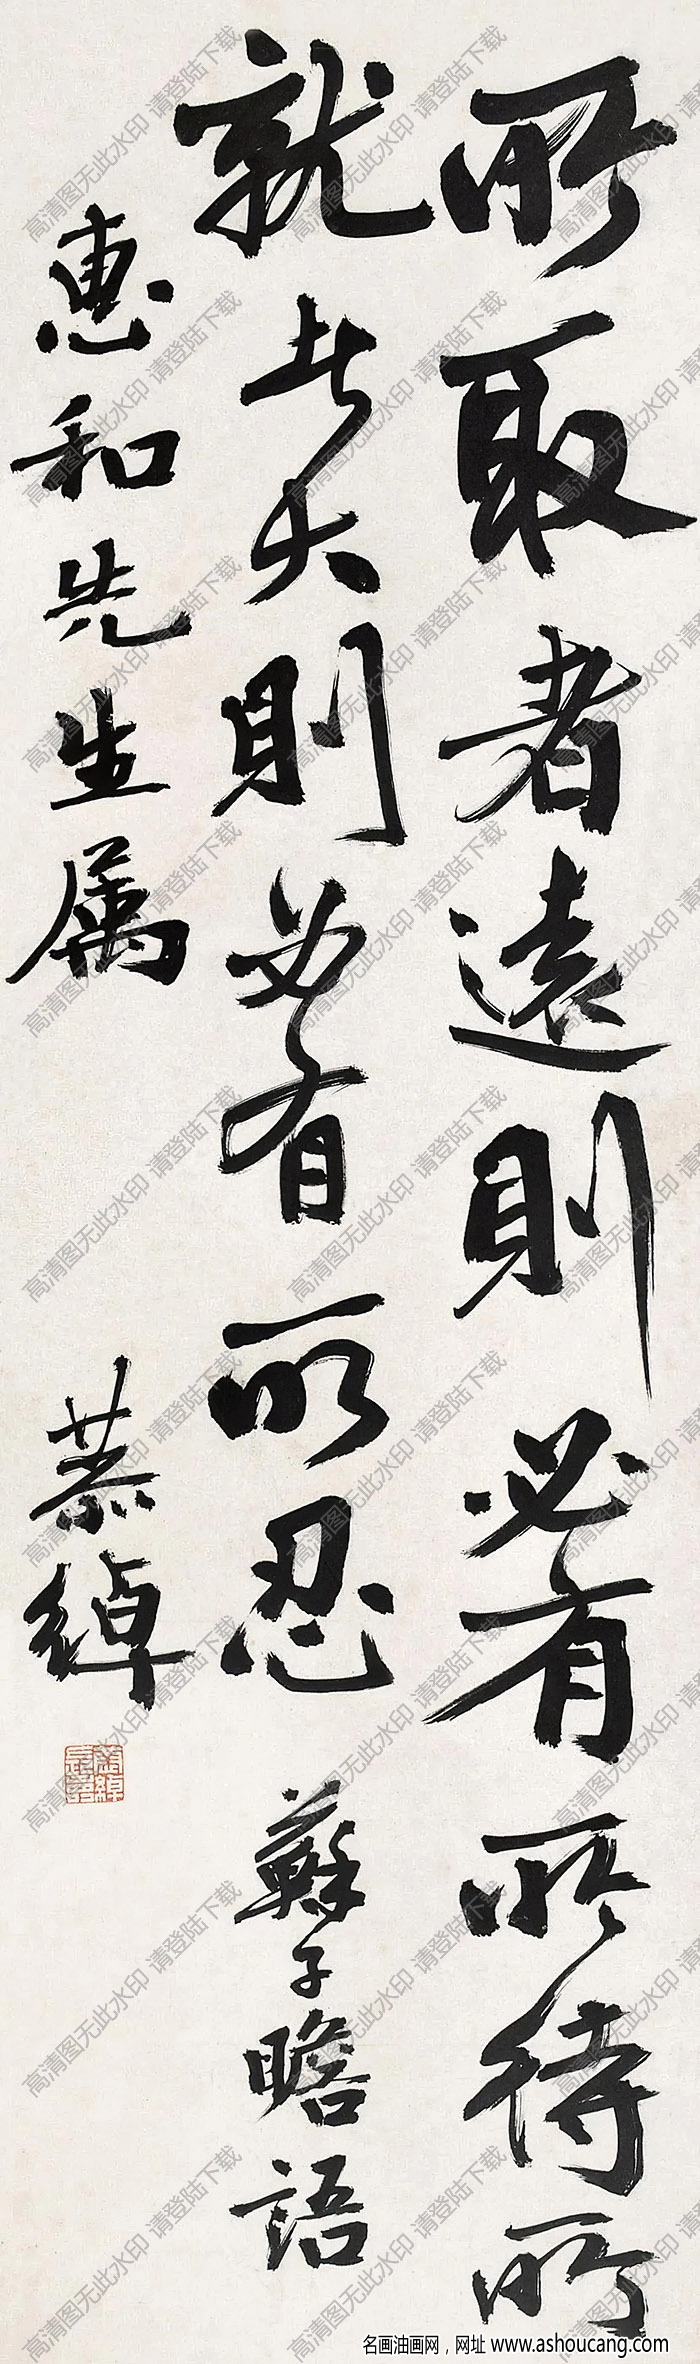 所取者遠則必有所待所
就者大則必有所忍 蘇子瞻語
惠和先生属 恭綽
高清图无此水印 请登陆下载
名画油画网，网址 www.ashoucang.com